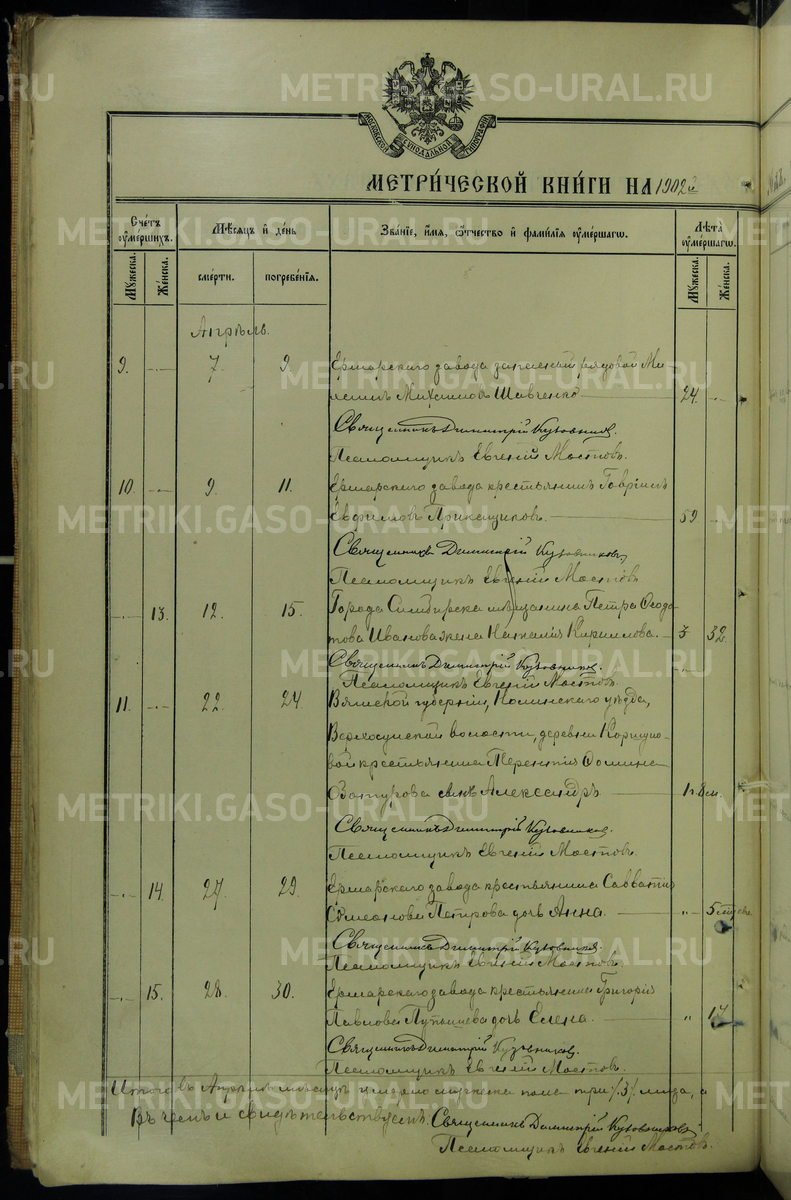 METRIKI.GASO-URAL.RU
МОСКОВСКОЙ СѴНОДАЛЬНОЙ ТИПОГРАФІИ
МЕТРИ́ЧЕСКОЙ КНИ́ГИ НА 1902й
Сче́тъ ᲂу҆ме́ршихъ.
Мѣсяцъ и҆ де́нь
Зва́нїе, и҆́мя, ѻ҆́тчество и҆ фами́лїя ᲂу҆ме́ршагѡ.
Лѣта̀ ᲂу҆ме́ршагѡ.
Мꙋ́жеска.
Же́нска.
сме́рти.
погребе́нїя.
Мꙋ́жеска.
Же́нска.
Апрѣль.
9. 7. 9. Ермарскаго завода запасный рядовой Ми
Михаиловъ Шевченко 24.
Священникъ Димитрій Кузовников.
Псаломщикъ Евгеній Мостовъ.
10. 9. 11. Ермарскаго завода крестьянинъ Гавріилъ
Евфимовъ Прикащиковъ. 59
Священникъ Димитрій Кузовников
Псаломщикъ Евгеній Мостовъ
13. 12. 15. Города Симбирска мѣщанина Петра Ѳеодо
това Иванова жена Наталія Кириллова. 32.
Священникъ Димитрій Кузовников.
Псаломщикъ Евгеній Мостовъ.
11. 22. 24. Вятской губерніи, Нолинскаго уѣзда,
Верхосунской волости, деревни
крестьянина Терентія
сынъ Александръ 1г. 8м.
Священникъ Димитрій Кузовников.
Псаломщикъ Евгеній Мостовъ
14. 27. 29. Ермарскаго завода крестьянина Савватія
Симеонова Петрова дочь Анна. " 5
Священникъ Димитрій Кузовников.
Псаломщикъ Евгеній Мостовъ
15. 28. 30. Ермарскаго завода крестьянина Григорія
Павлова дочь Елена. " 17
Священникъ Димитрій Кузовников.
Псаломщикъ Евгеній Мостовъ.
Итого въ Апрѣлѣ мѣсяцѣ умерло мужеска пола три /3/ лица, а
Въ чемъ и свидѣтельствуемъ: Священникъ Димитрій Кузовников
Псаломщикъ Евгеній Мостовъ.